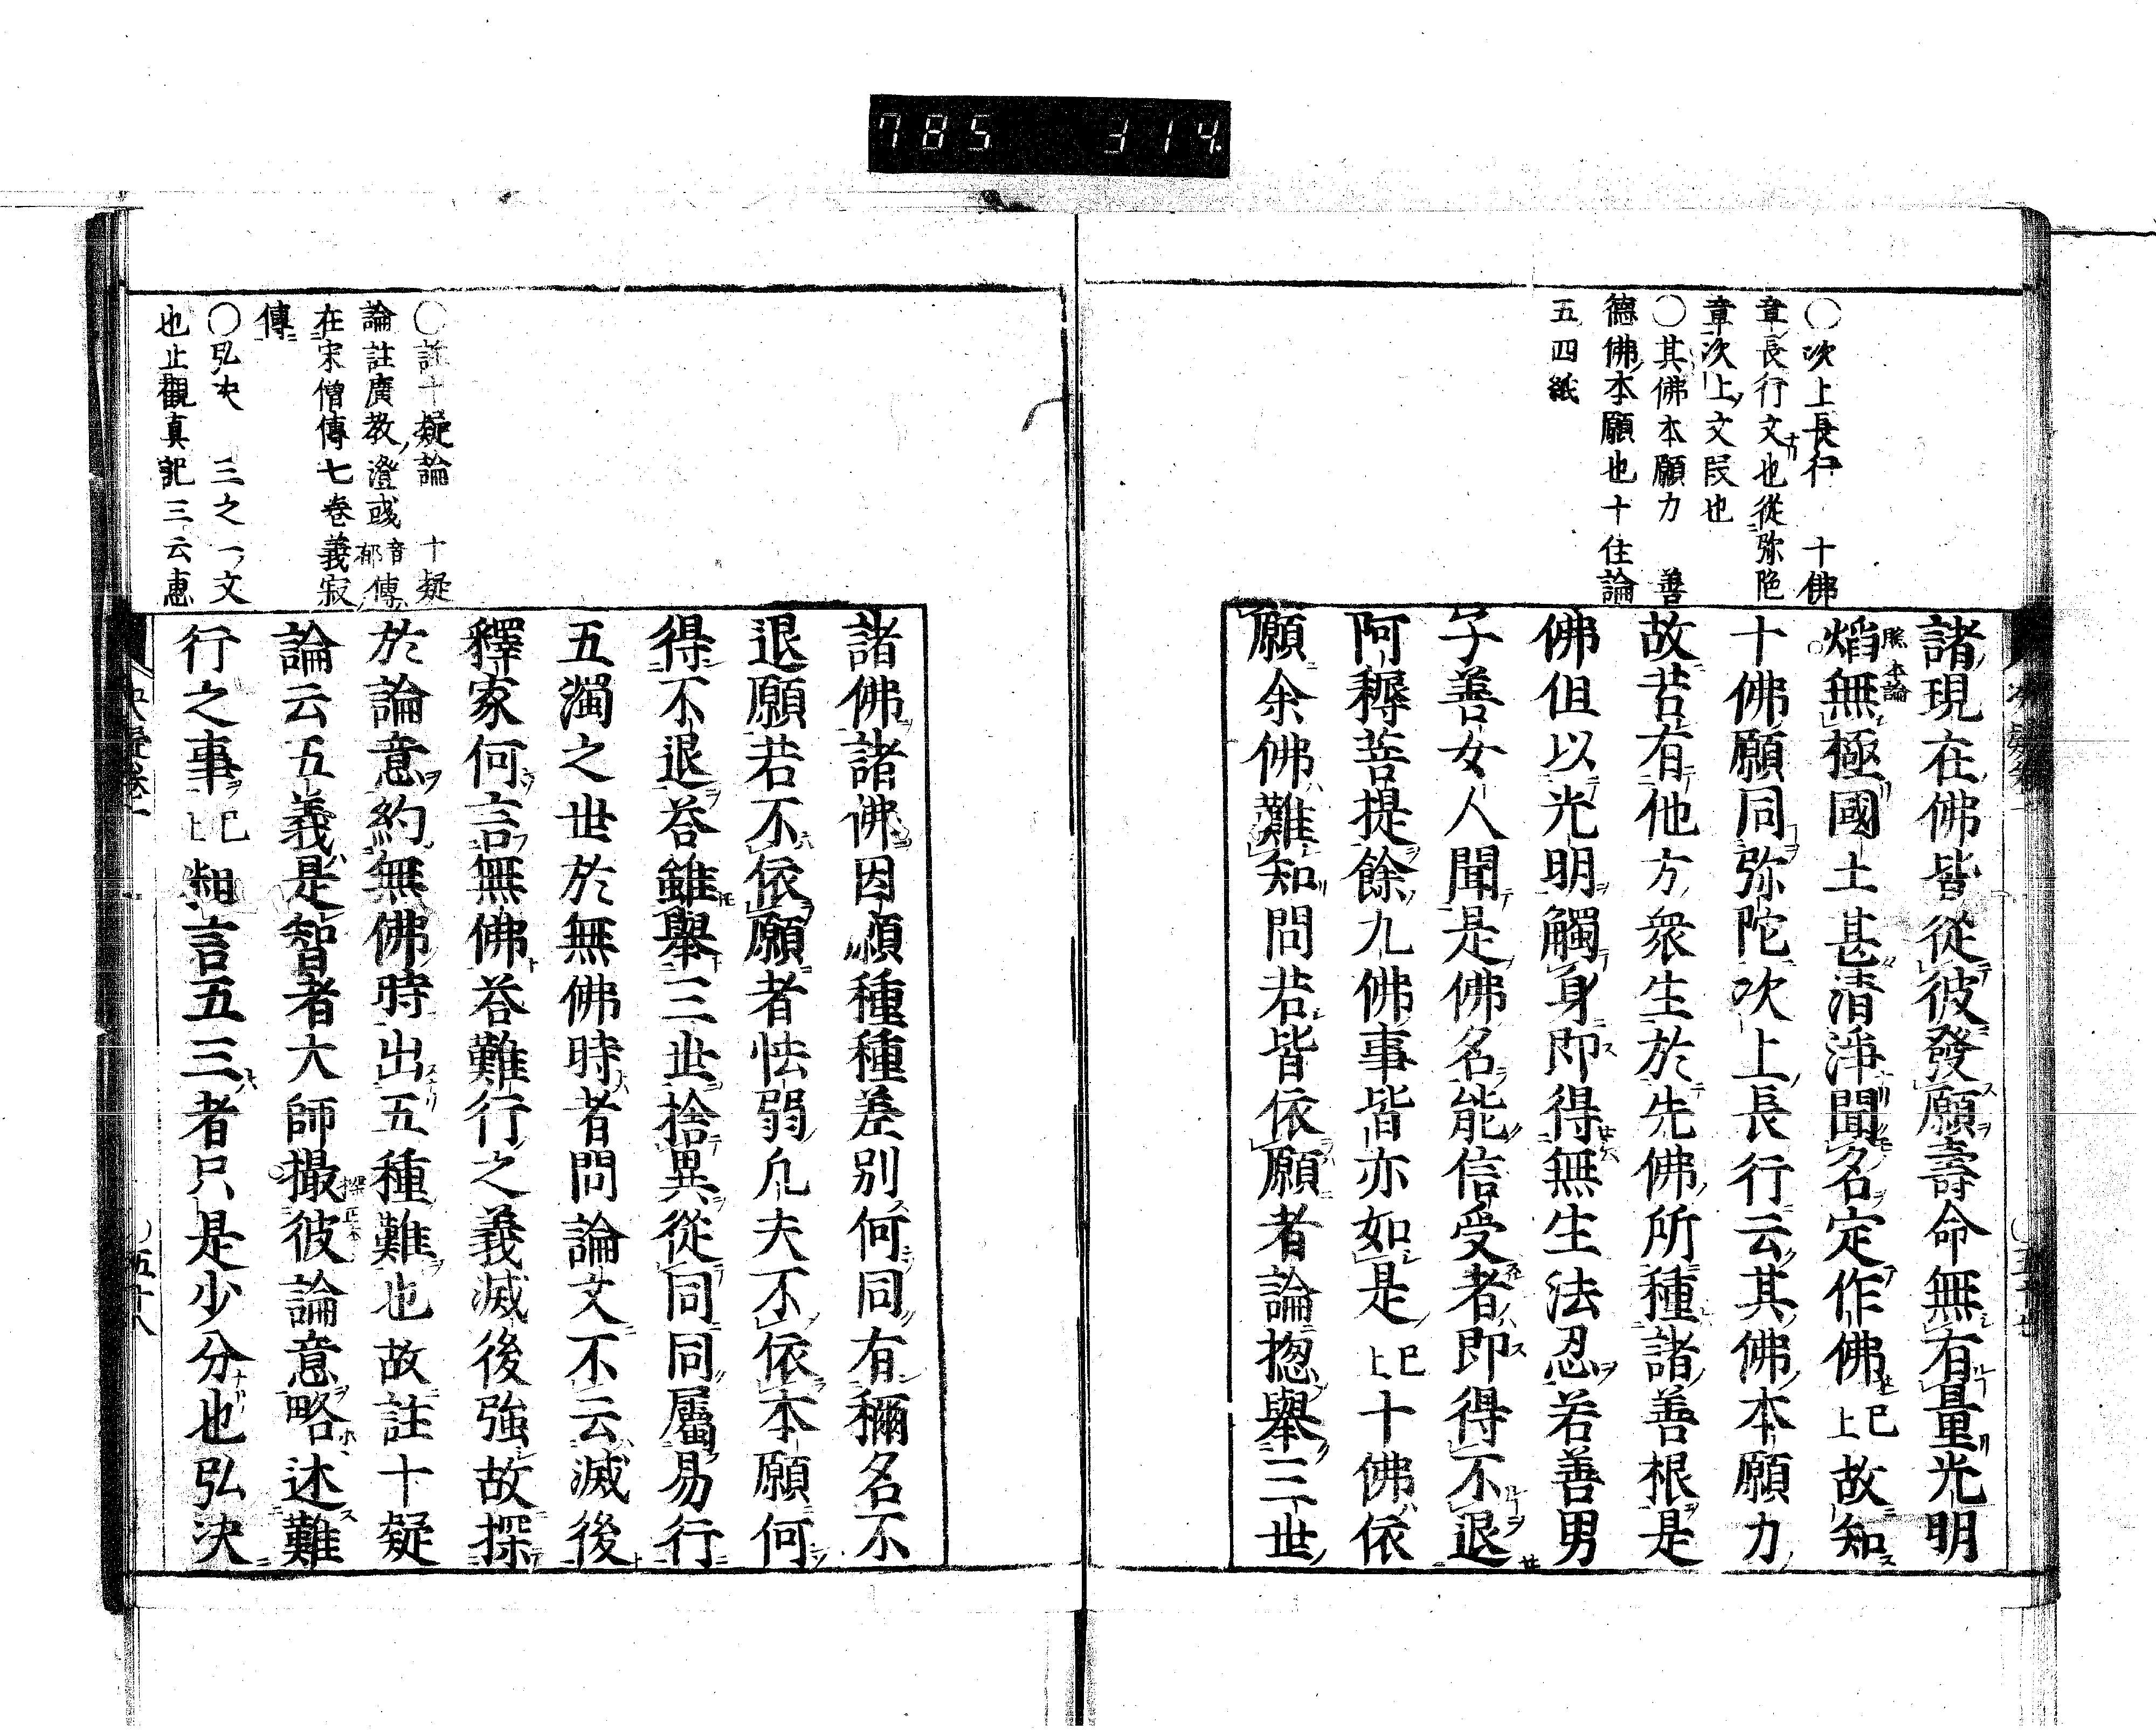 785 314.
○次上長行 十佛
章長行文也從弥陀
章次上文段也
○其佛本願力 善
德佛本願也十住論
五四紙
諸現在佛皆從彼發願壽命無有量光明
焔無極國土甚清淨聞名定作佛已上故知
熈本論
十佛願同弥陀次上長行云其佛本願力
故若有他方衆生於先佛所種諸善根是
佛但以光明觸身即得無生法忍若善男
子善女人聞是佛名能信受者即得不退
阿耨菩提餘九佛事皆亦如是已上十佛依
願余佛難知問若皆依願者論揔舉三世
○註十疑論 十疑
論註廣教澄彧音郁傳
在宋僧傳七卷義寂
傳
○弘决 三之一文
也止觀真記三云惠
諸佛諸佛因願種種差別何同有稱名不
退願若不依願者怯弱凡夫不依本願何
得不退荅雖舉三世捨異從同同屬易行
五濁之世於無佛時者問論文不云滅後
釋家何言無佛荅難行之義滅後強故探
於論意約無佛時出五種難也故註十疑
論云五義是智者大師撮彼論意略述難
行之事已上麁言五三者只是少分也弘决
决疑卷一
五十八